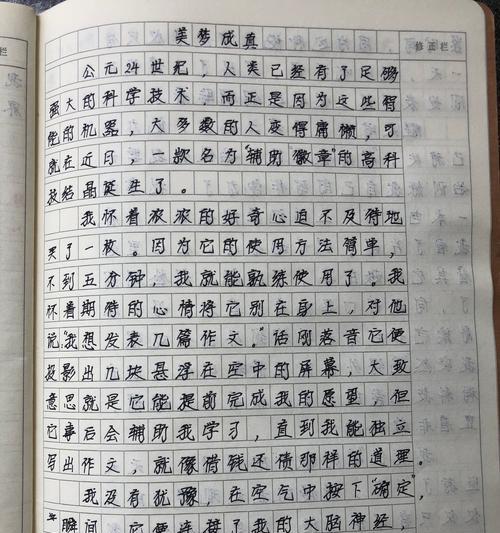 美梦成真
修正栏
公元24世纪，人类已经有了足够
强大的科学技术，而正是因为这些智
能的机器，大多数的人变得慵懒，可
就在近日，一款名为“辅助”徽章”的高科
技结晶诞生了。
我怀着浓浓的好奇心迫不及待地
买了一枚。因为它的使用方法简单，
不到五分钟，我就能熟练使用了。我
怀着期待的心情将它别在身上，对他
说“我想发表几篇作文。”话刚落音它便
投影出几块悬浮在空中的屏幕，大致
意思就是它能提前完成我的愿望，但
它事后会辅助我学习，直到我能独立
写出作文，就像借钱还债那样的道理。
我没有犹豫，在空气中按下“确定”，
瞬间，它便连接了我的大脑神经，